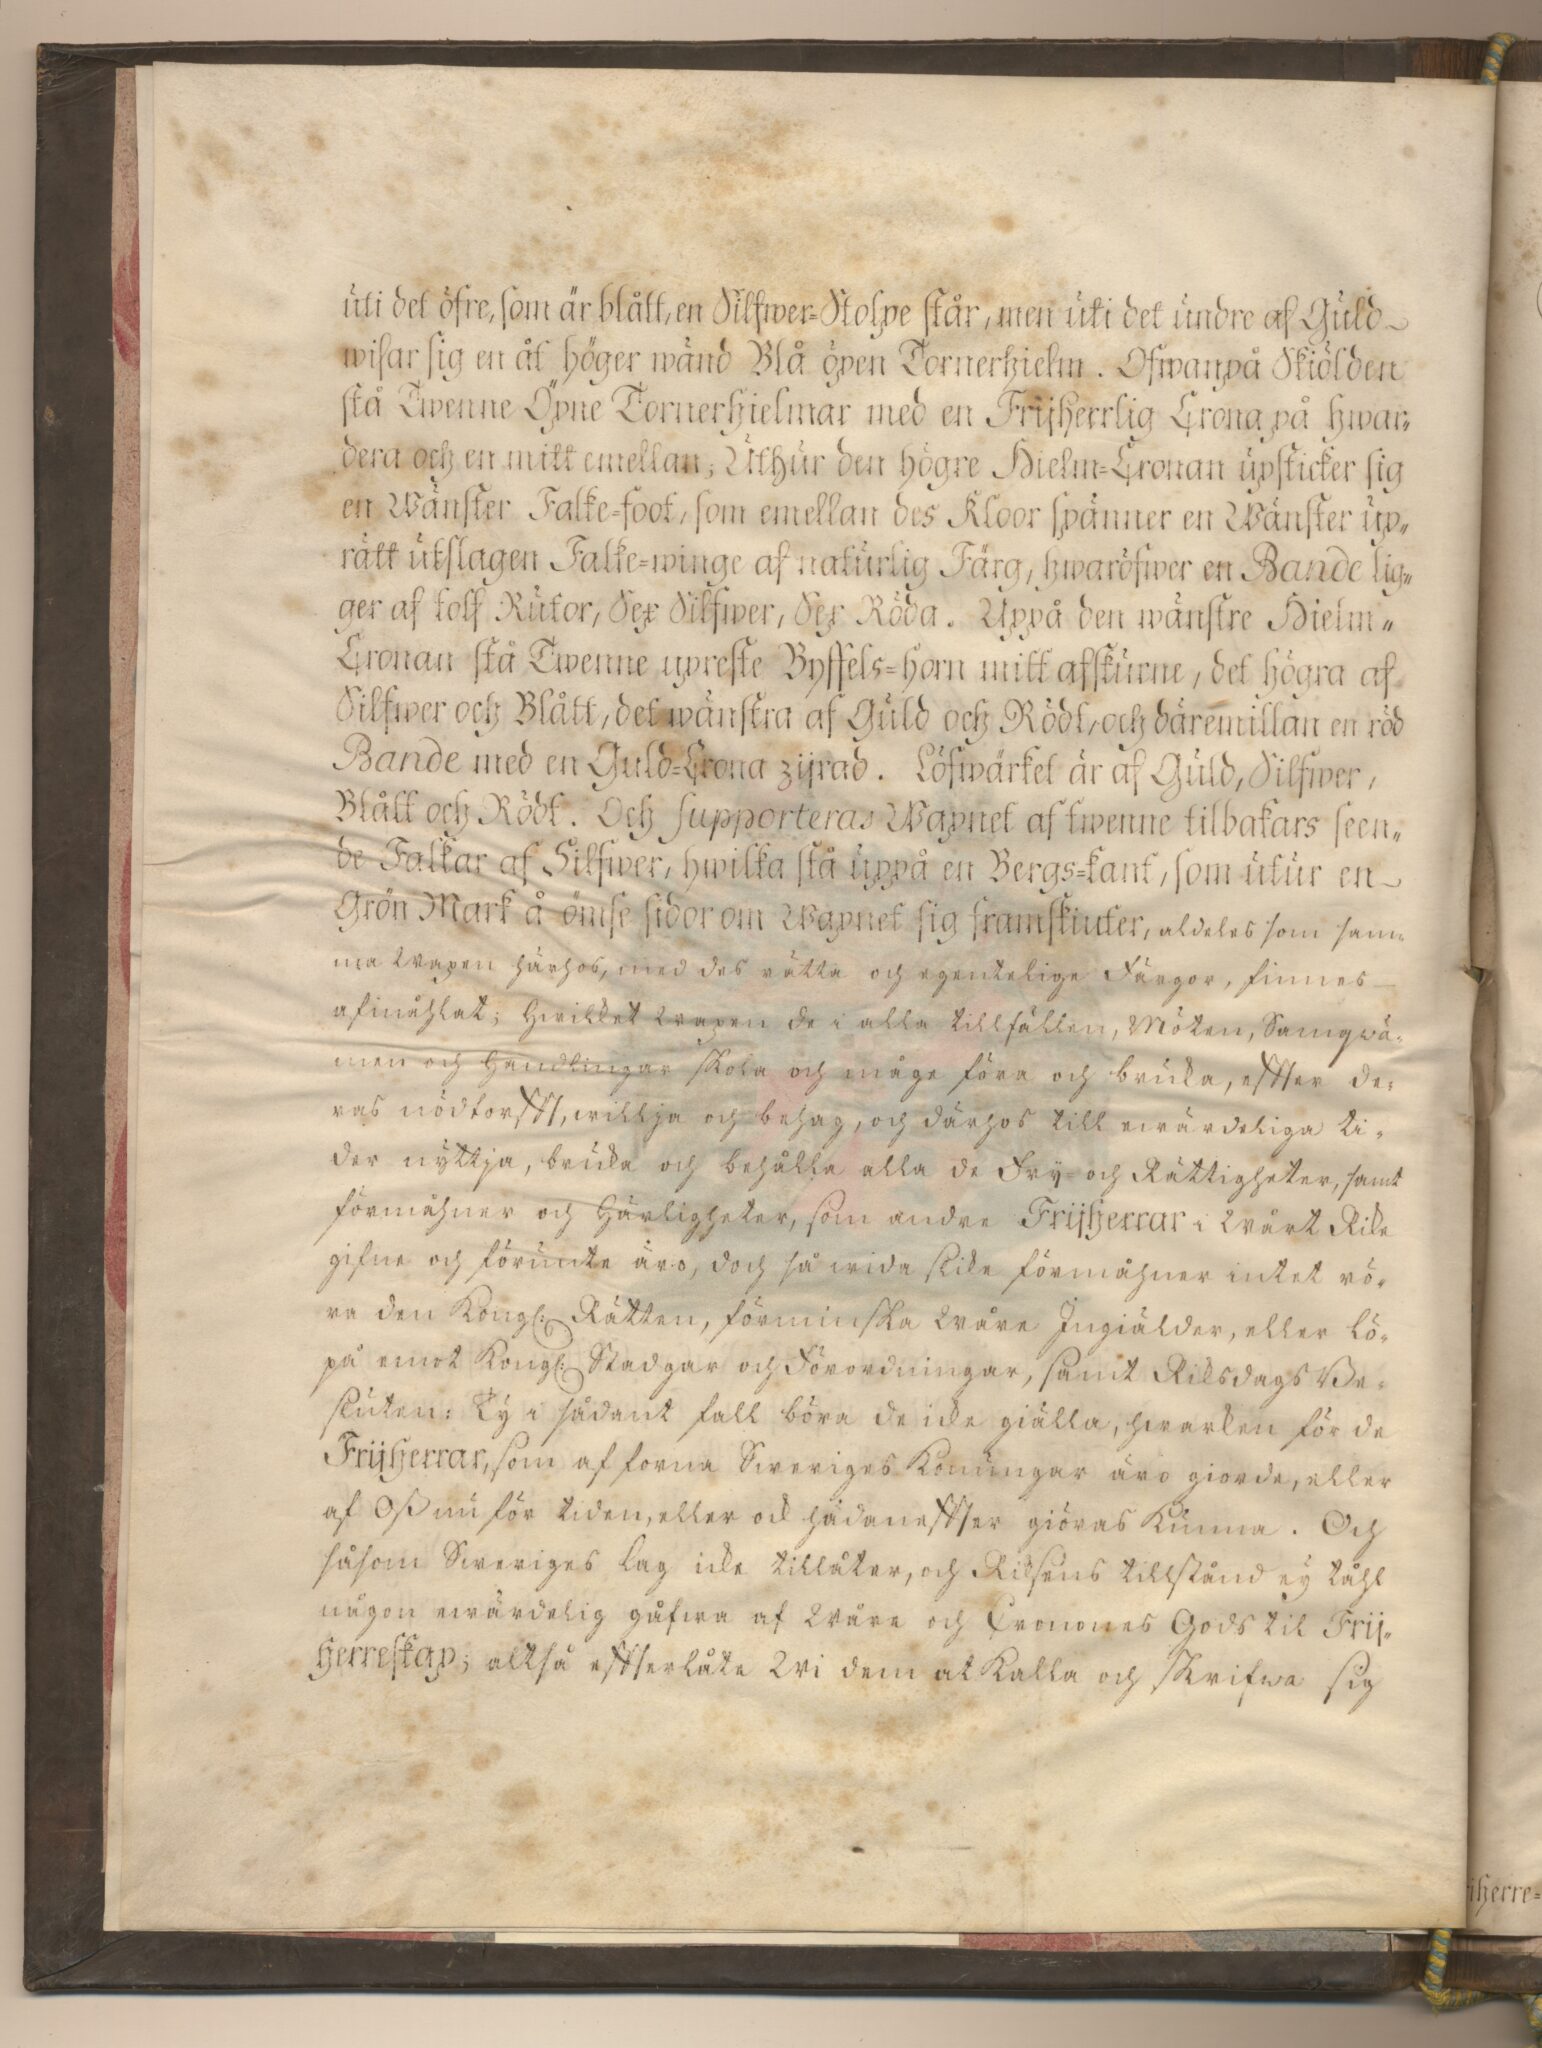 uti det öfre, som är blått, en Silfwer-Stolpe står, men uti det undre af Guld
wisar sig en åt höger wänd Blå öpen Tornerhielm. Ofwanpå Skiölden
stå Twenne Öpne Tornerhielmar med en Frijherrlig Crona på hwar-
dera och en mitt emellan; Uthur den högre Hielm-Cronan upsticker sig
en Wänster Falke-foot, som emellan des Kloor spänner en Wänster up-
rätt utslagen Falke-winge af naturlig Färg, hwaröfwer en Bande lig-
ger af tolf Rutor, Sex Silfwer, Sex Röda. Uppå den wänstre Hielm-
Cronan stå Twenne upreste Byffels-horn mitt afskurne, det högra af
Silfwer och Blått, det wänstra af Guld och Rödt, och däremillan en röd
Bande med en Guld-Crona zijrad. Löfwärket är af Guld, Silfwer,
Blått och Rödt. Och supporteras Wapnet af twenne tilbakars seen-
de Falkar af Silfwer, hwilka stå uppå en Bergs-kant, som utur en
Grön Mark å ömse sidor om Wapnet sig framskiuter, aldeles som sam-
ma Wapen härhos, med des rätta och egentelige Färgor, finnes
afmåhlat; Hwilket Wapen de i alla tillfällen, Möten, Samqwä-
men och Handlingar skola och måge föra och bruka, effter de-
ras nödtorfft, willja och behag, och därhos till ewärdeliga ti-
der nyttja, bruka och behålla alla de Fry- och Rättigheter, samt
förmåhner och Härligheter, som andre Frijherrar i Wårt Rike
gifne och förunte äro, doch så wida slike förmåhner intet rö-
ra den Kongl: Rätten, förminska Wåre Ingiälder, eller lö-
pa emot Kongl: Stadgar och Förordningar, samt Riksdags Be-
sluten: Ty i sådant fall böra de icke giälla, hwarken för de
Frijherrar, som af forna Sweriges Konungar äro giorde, eller
af Oß nu för tiden, eller ock hädaneffter giöras kunna. Och
såsom Sweriges Lag icke tillåter, och Riksens tillstånd ey tåhl
någon ewärdelig gåfwa af Wåre och Cronones Gods til Frij-
herreskap; altså effterlåte Wi dem at kalla och skrifwa sig
iherre-